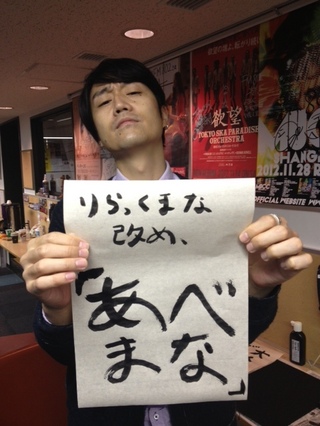 りらっくまな
改め、
「あべ
まな」
欲望
TOKYO SKA PARADISE
ORCHESTRA
SHANG
2012.11.28
OFFICIAL WEBSITE